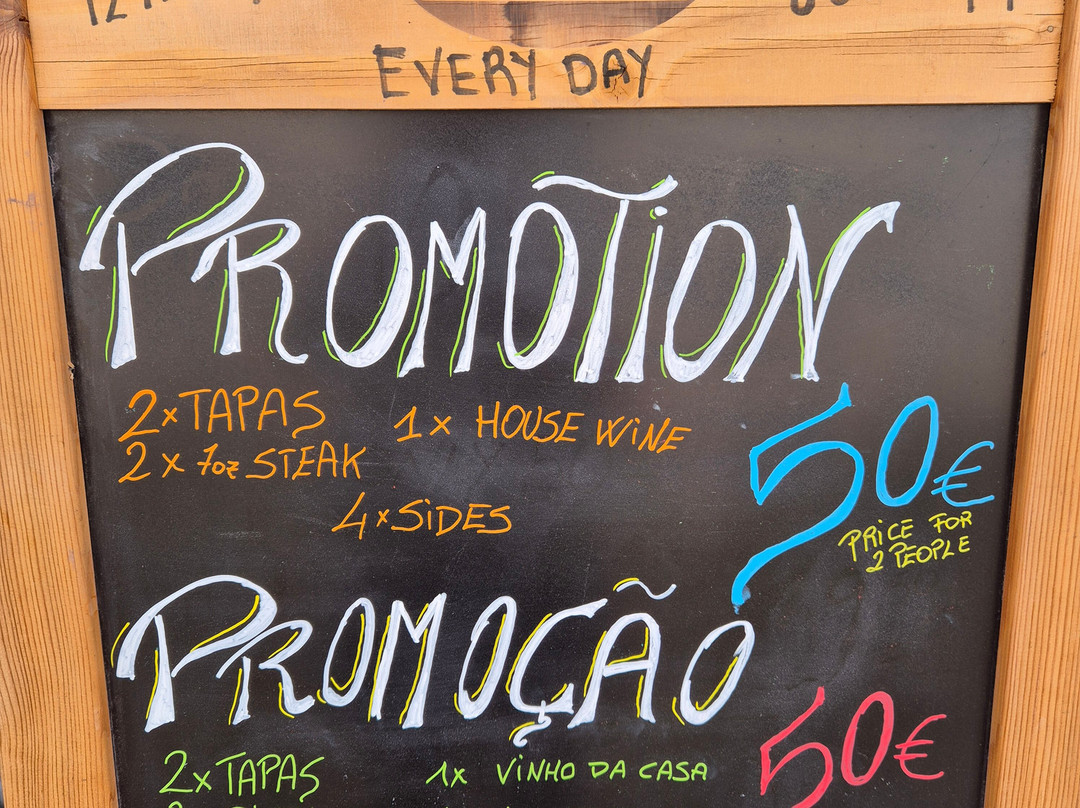 EVERY DAY
PROMOTION
2x TAPAS 1x HOUSE WINE
2x 7oz STEAK
4x SIDES
50€
PRICE FOR
2 PEOPLE
PROMOÇÃO
50€
2x TAPAS 1x VINHO DA CASA